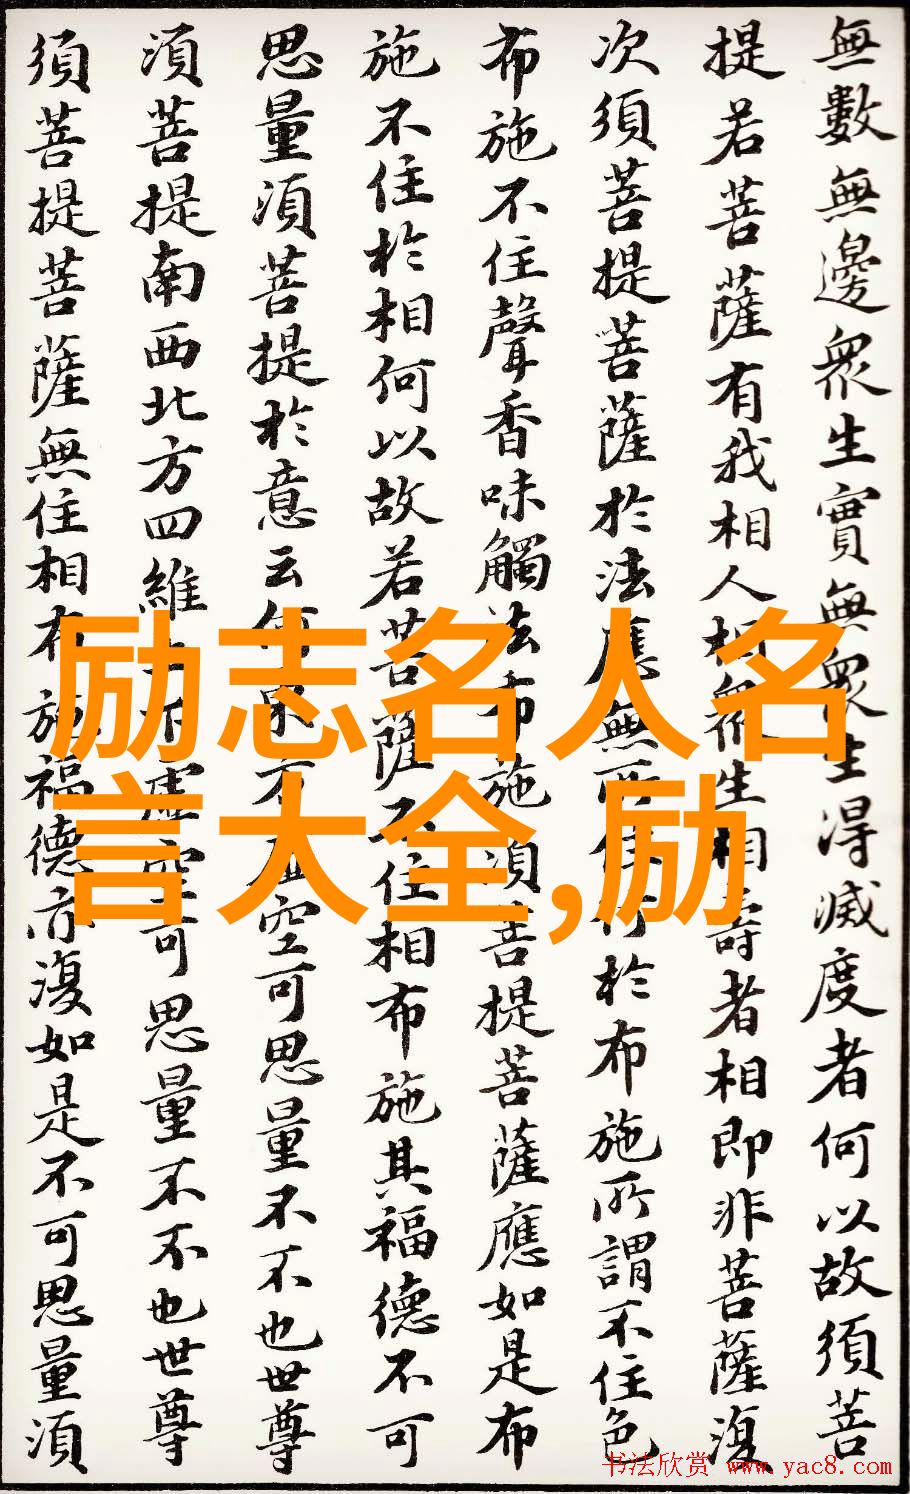 無數無邊眾生實無眾生得滅度者何以故須菩
提若菩薩有我相人相眾生相壽者相即非菩薩復
次須菩提菩薩於法應無所住行於布施所謂不住色
布施不住聲香味觸法布施須菩提菩薩應如是布
施不住於相何以故若菩薩不住相布施其福德不可
思量須菩提於意云何東方虛空可思量不不也世尊
須菩提南西北方四維上下虛空可思量不不也世尊
須菩提菩薩無住相布施福德亦復如是不可思量須
励志名人名
言大全,励
书法欣赏 www.yac8.com